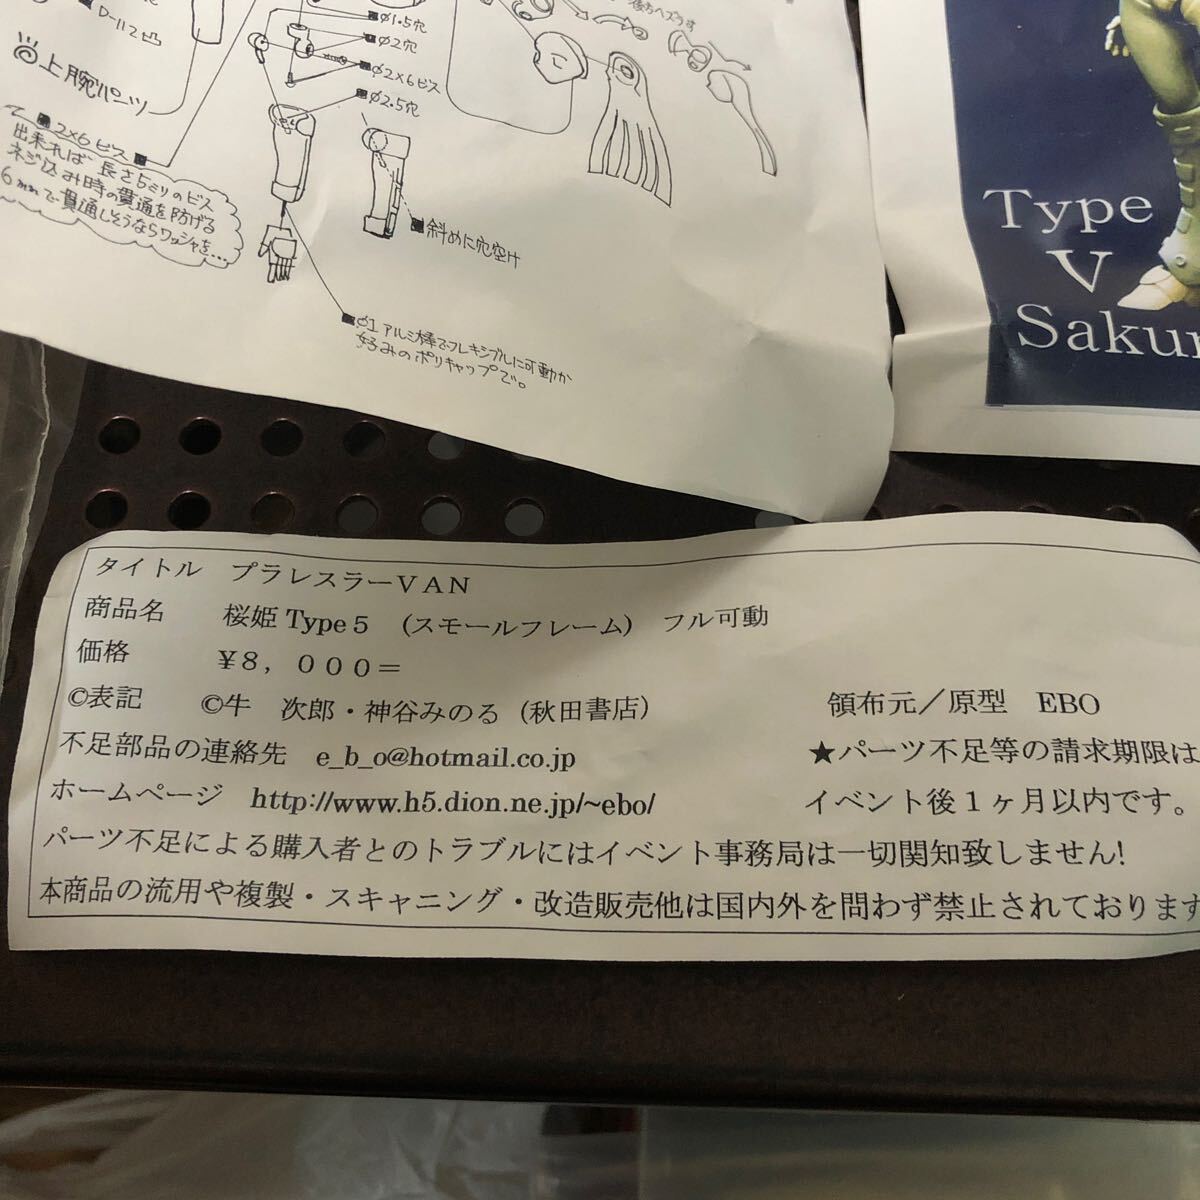 D-112凸
上腕パーツ
2×6ビス
出来れば長さ5ミリのビス
ネジ込み時の貫通を防げる
6mmで貫通しそうならワッシャを…
φ1.5穴
φ2穴
φ2×6ビス
φ2.5穴
斜めに穴空け
φ1アルミ棒でフレキシブルに可動か
好みのポリキャップで。
後方へズラす
Type
V
Sakur
タイトル プラレスラーVAN
商品名 桜姫Type5 (スモールフレーム) フル可動
価格 ¥8,000=
©表記 ©牛 次郎・神谷みのる(秋田書店)
領布元/原型 EBO
不足部品の連絡先 e_b_o@hotmail.co.jp
★パーツ不足等の請求期限は
ホームページ http://www.h5.dion.ne.jp/~ebo/
イベント後1ヶ月以内です。
パーツ不足による購入者とのトラブルにはイベント事務局は一切関知致しません!
本商品の流用や複製・スキャニング・改造販売他は国内外を問わず禁止されております